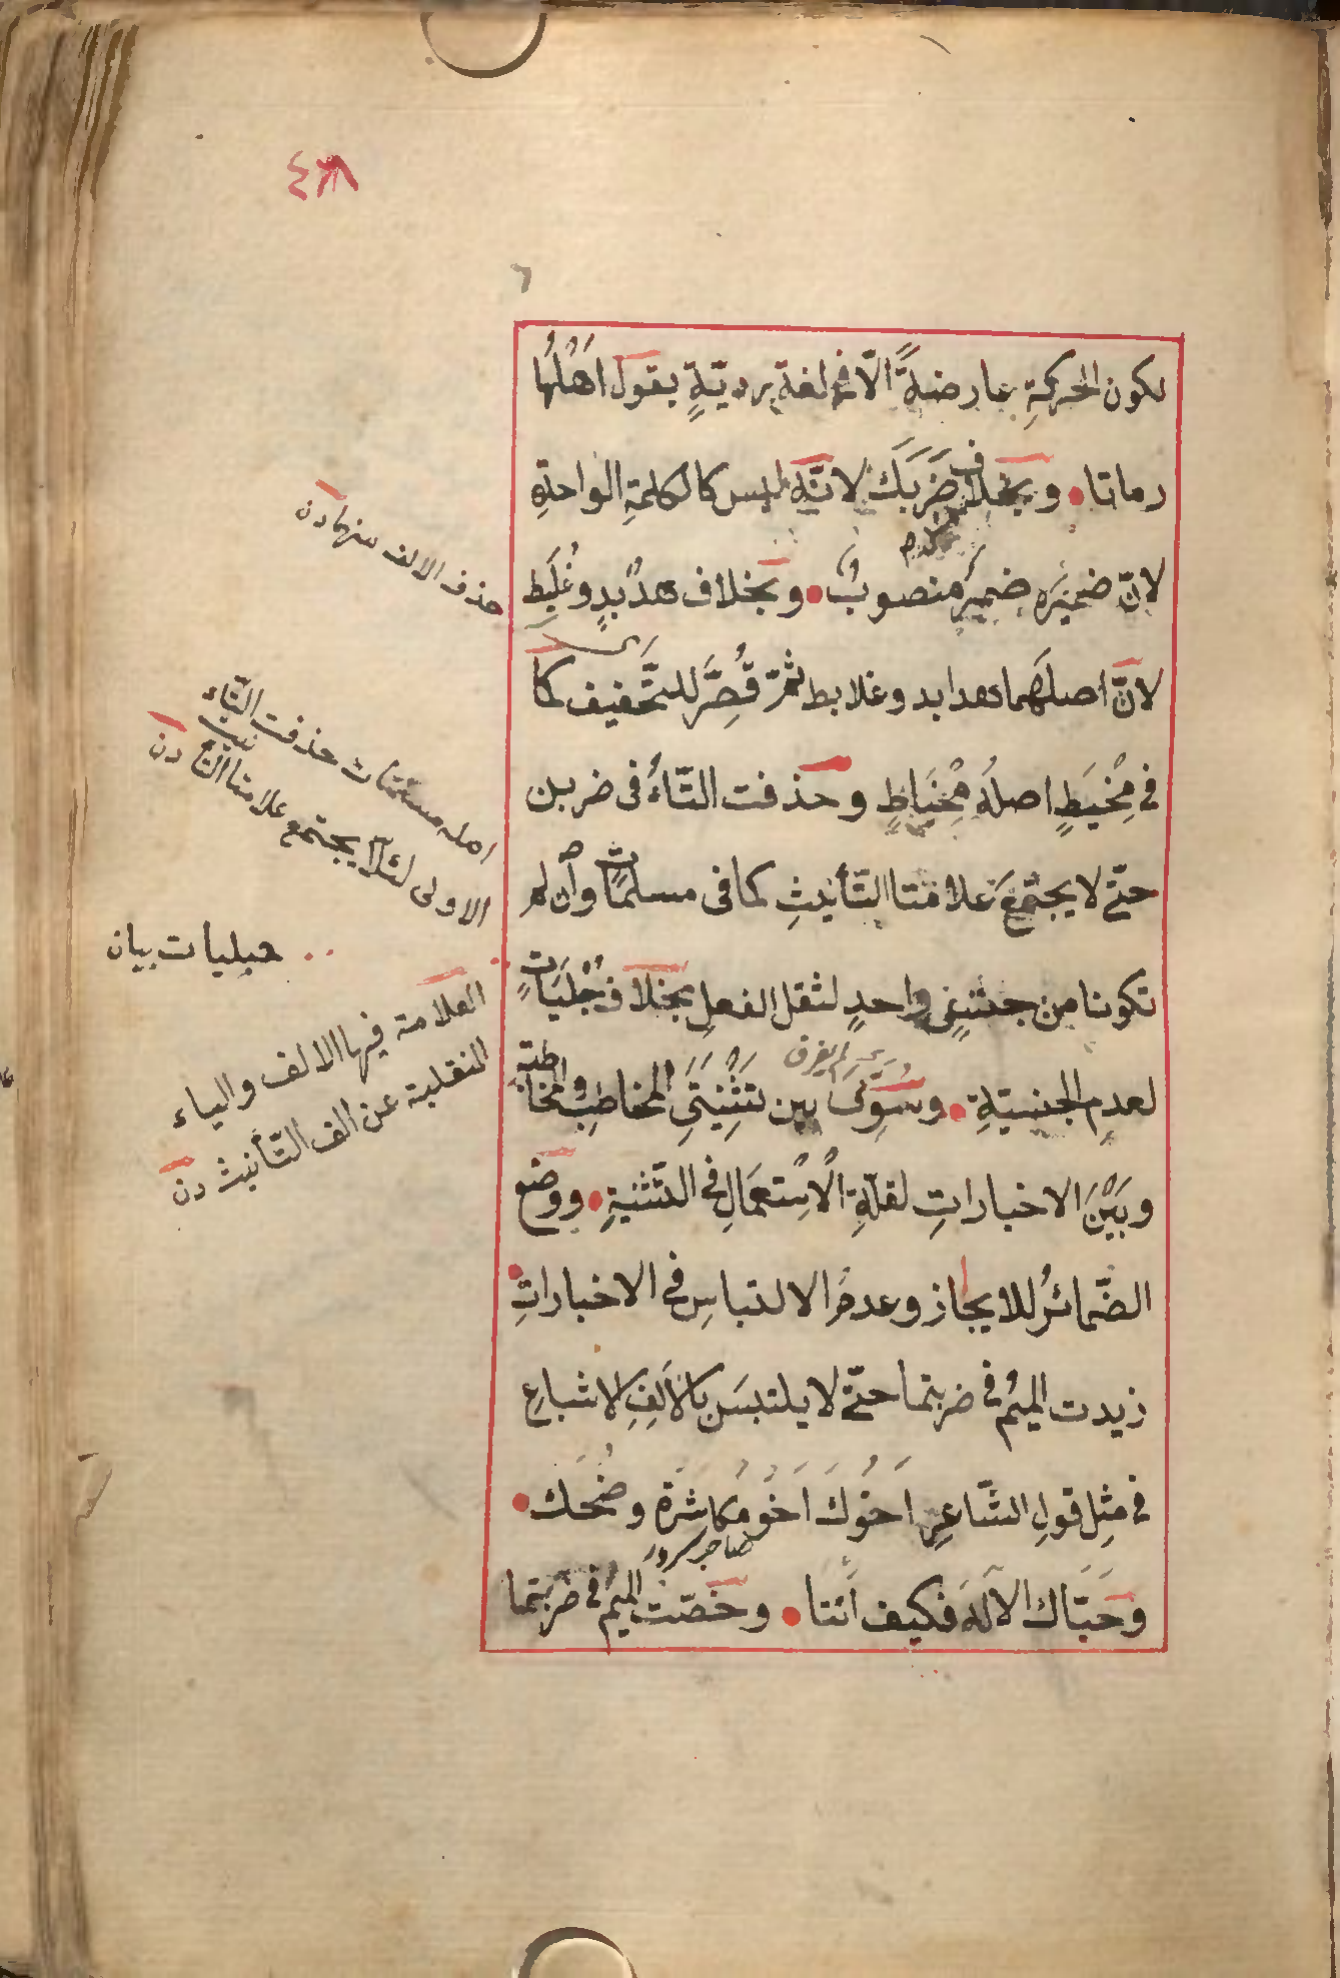 ٤٨
٦
لكون الحركةِ عارضةً الّا فى لغةٍ رديّةٍ يقول اَهْلُها
رماتا • وبخلاف ضَرَبَكَ لانّه ليس كالكلمةِ الواحدةِ
لانّ ضميَره ضميرٌ منصوبٌ • وبخلاف هدُبِدٍ وغُلَبِطٍ
لانّ اصلَهما هدابد وغلابط ثمّ قُصِّرَ للتَّخفيف كما
فى مِخْيَطٍ اصلُه مِخْيَاطٍ وحذفت التّاءُ فى ضربن
حتّى لا يجتمعَ علامتا التّأنيثِ كما فى مسلماتٍ وان لم
تكونا من جنسٍ واحدٍ لثقل الفعلِ بخلاف حُبْلَيَاتٍ
لعدمِ الجنسيّةِ • وسُوِّىَ بين تَثْنِيَتَىِ المخاطبِ والمخاطبةِ
لم يفرق
وبَيْنَ الاخباراتِ لقلّةِ الْاِسْتعمَالِ فى التّثنيةِ • ووضع
الضّمائرُ للايجاز وعدمُ الالتباسِ فى الاخباراتِ •
زيدت الميُم فى ضربتما حتّى لا يلتبسَ بالاَلفِ الاشباعِ
فى مثِل قولِ الشّاعرِ اَخُوْكَ اَخُو مُكاشَرَةٍ وضُحك •
وحَيّاك الاِلٰهَ فكيف اَنتا • وخُصّت الميُم فى ضَرَبتما
حذف الالف منهما دن
اصله مسلمتات حذفت التّاء
الاولى لئلّا يجتمع علامتا التأنيث دن
حبليات بيان
العلامة فيها الالف والياء
المنقلبة عن الف التّأنيث دن